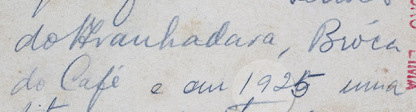 do Aranhadara, Bróca
do Café e em 1925 uma